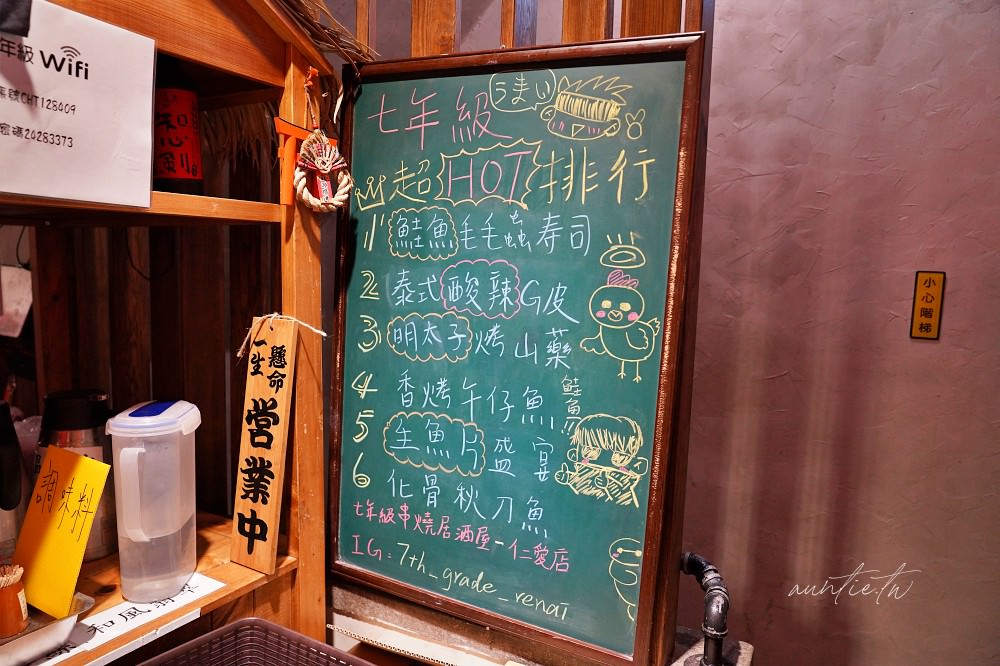 年級 Wifi
帳號CHT128409
密碼20283373
調味料
一生懸命
営業中
七年級
うまい
超HOT排行
1 鮭魚毛毛蟲寿司
2 泰式酸辣G皮
3 明太子烤山藥
4 香烤午仔魚
鮭魚
5 生魚片盛宴
6 化骨秋刀魚
七年級串燒居酒屋-仁愛店
IG:7th_grade_renai
小心階梯
和風
auntie.tw